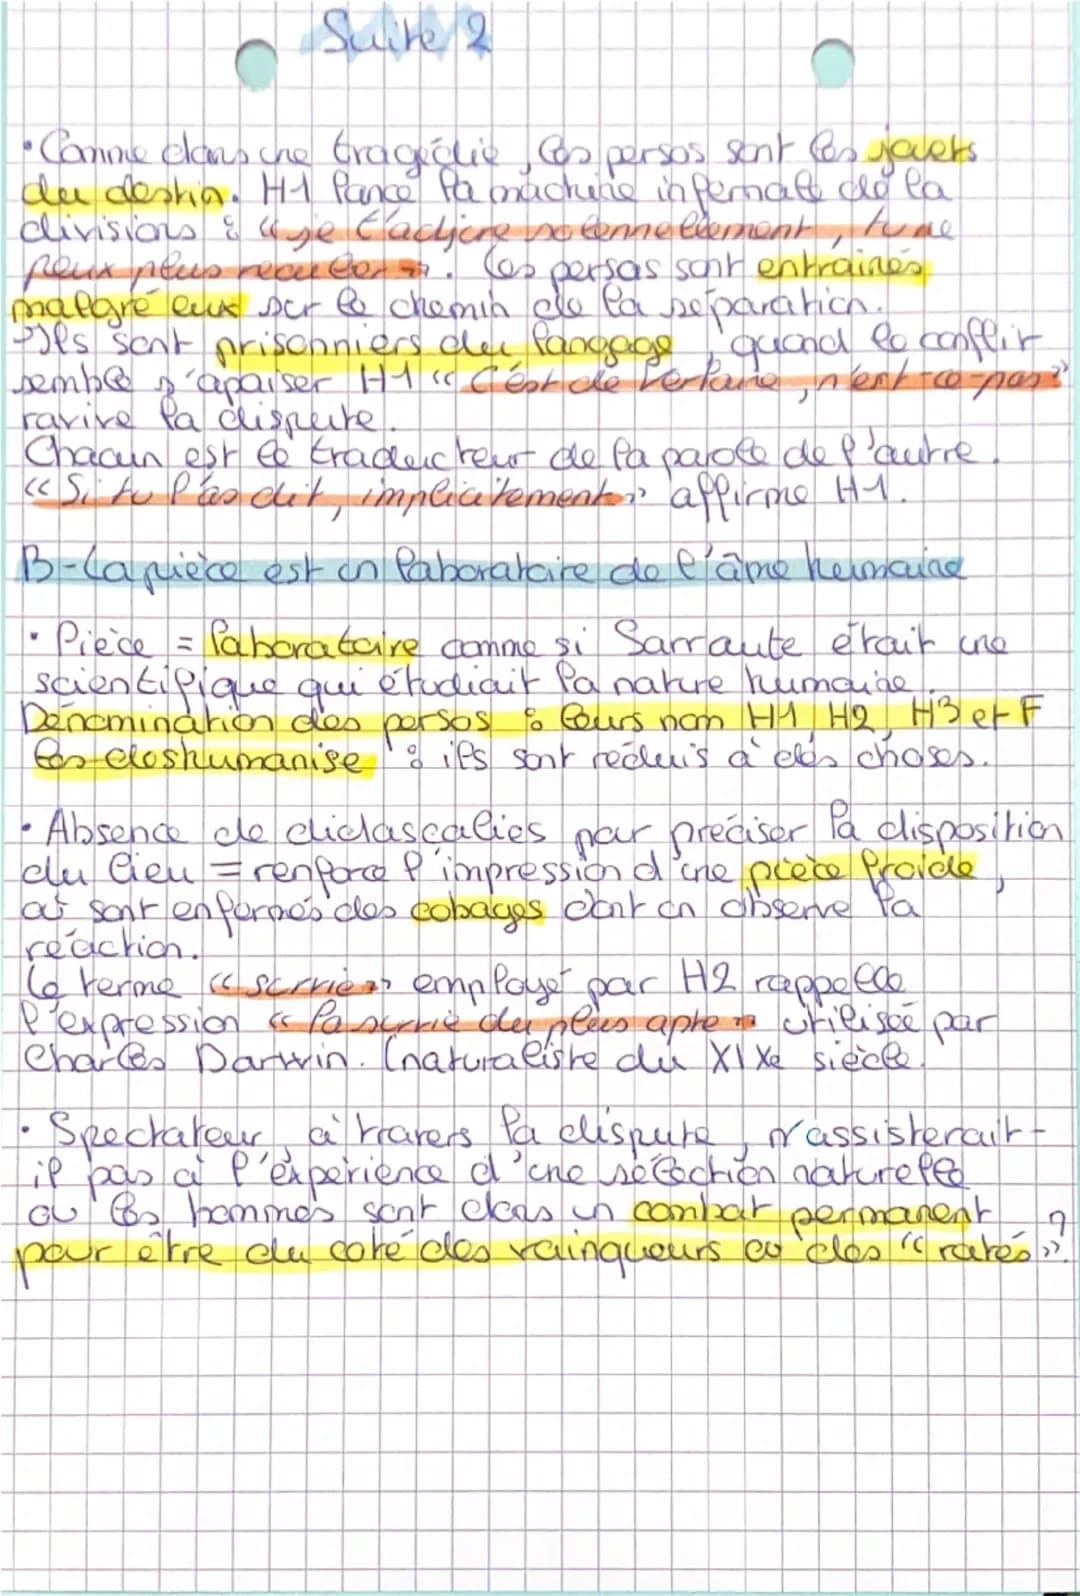 Suite 2
• Comme dans une tragédie, les persos sont les jouets
du destin. H1 lance la machine infernale de la
divisions : « je t'adjure solennellement, tu ne
peux plus reculer ». Les persos sont entrainés
malgré eux sur le chemin de la séparation.
→ Ils sont prisonniers du langage, quand le conflit
semble s'apaiser H1 « C'est de Verlaine, n'est-ce-pas ? »
ravive la dispute.
Chacun est le traducteur de la parole de l'autre.
« Si tu l'as dit, implicitement » affirme H1.
B-La pièce est un laboratoire de l'âme humaine
• Pièce = laborataire comme si Sarraute était une
scientifique qui étudiait la nature humaine.
Dénomination des persos : leurs nom H1, H2, H3 et F
les deshumanise : ils sont réduis à des choses.
• Absence de didascalies pour préciser la disposition
du lieu = renforce l'impression d'une pièce froide,
où sont enfermés des cobayes dont on observe la
réaction.
Le terme « survie » employé par H2 rappelle
l'expression « la survie du plus apte » utilisée par
Charles Darwin. (naturaliste du XIXe siècle.
• Spectateur, à travers la dispute, n'assisterait-
il pas à l'expérience d'une sélection naturelle
où les hommes sont dans un combat permanent
pour être du coté des vainqueurs ou des « ratés » ?